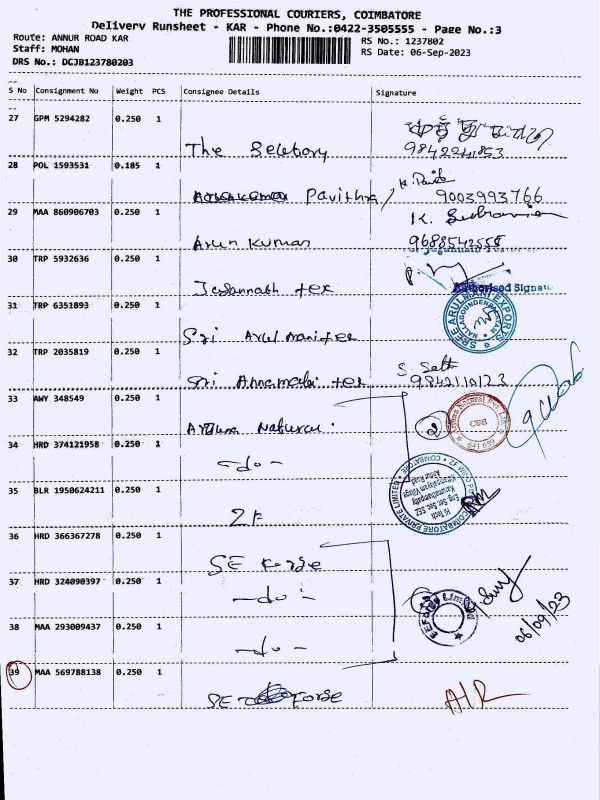 THE PROFESSIONAL COURIERS, COIMBATORE
Delivery Runsheet - KAR - Phone No.:0422-3505555 - Page No.:3
Route: ANNUR ROAD KAR
RS No.: 1237802
Staff: MOHAN
RS Date: 06-Sep-2023
DRS No.: DCJB123780203
S No Consignment No Weight PCS Consignee Details Signature
27 GPM 5294282 0.250 1
The 9842241853
28 POL 1593531 0.185 1
Pavithra 9003993766
29 MAA 860906703 0.250 1
K.
Arun Kumar 9688542555
30 TRP 5932636 0.250 1
Authorised Signato
Jegannath tex
31 TRP 6351893 0.250 1
SREE ARULMANI EXPORTS
Sri
32 TRP 2035819 0.250 1
S
Sri tex 9842110123
33 AWY 348549 0.250 1
2
Natural
CBE
641 659
34 HRD 374121958 0.250 1
-do-
35 BLR 1950624211 0.250 1
COIMBATORE PRIVATE LIMITED
Hi Tech
Eng. Ser. Sec. SEZ
ZF
36 HRD 366367278 0.250 1
SE Forge
37 HRD 324090397 0.250 1
-do-
06/09/23
38 MAA 293009437 0.250 1
-do-
39 MAA 569788138 0.250 1
SE Forge